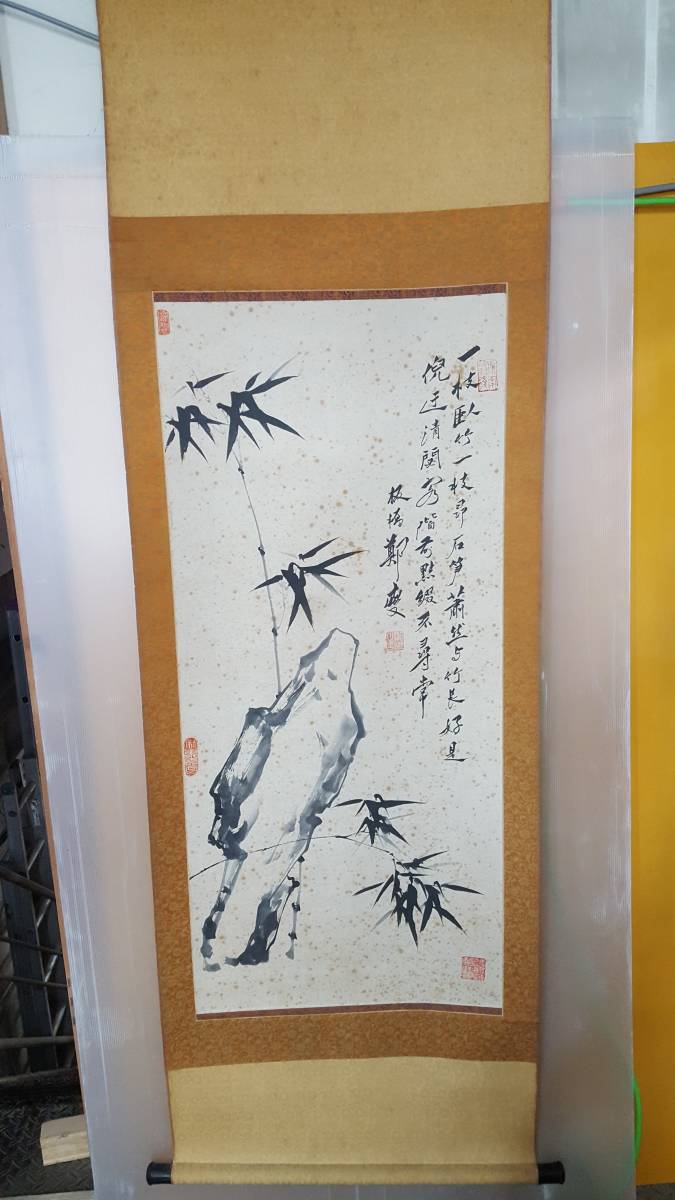 一枝臥竹一枝昂石笋蕭然与竹長好是
倪迂清閟客階前點綴不尋常
板橋鄭燮